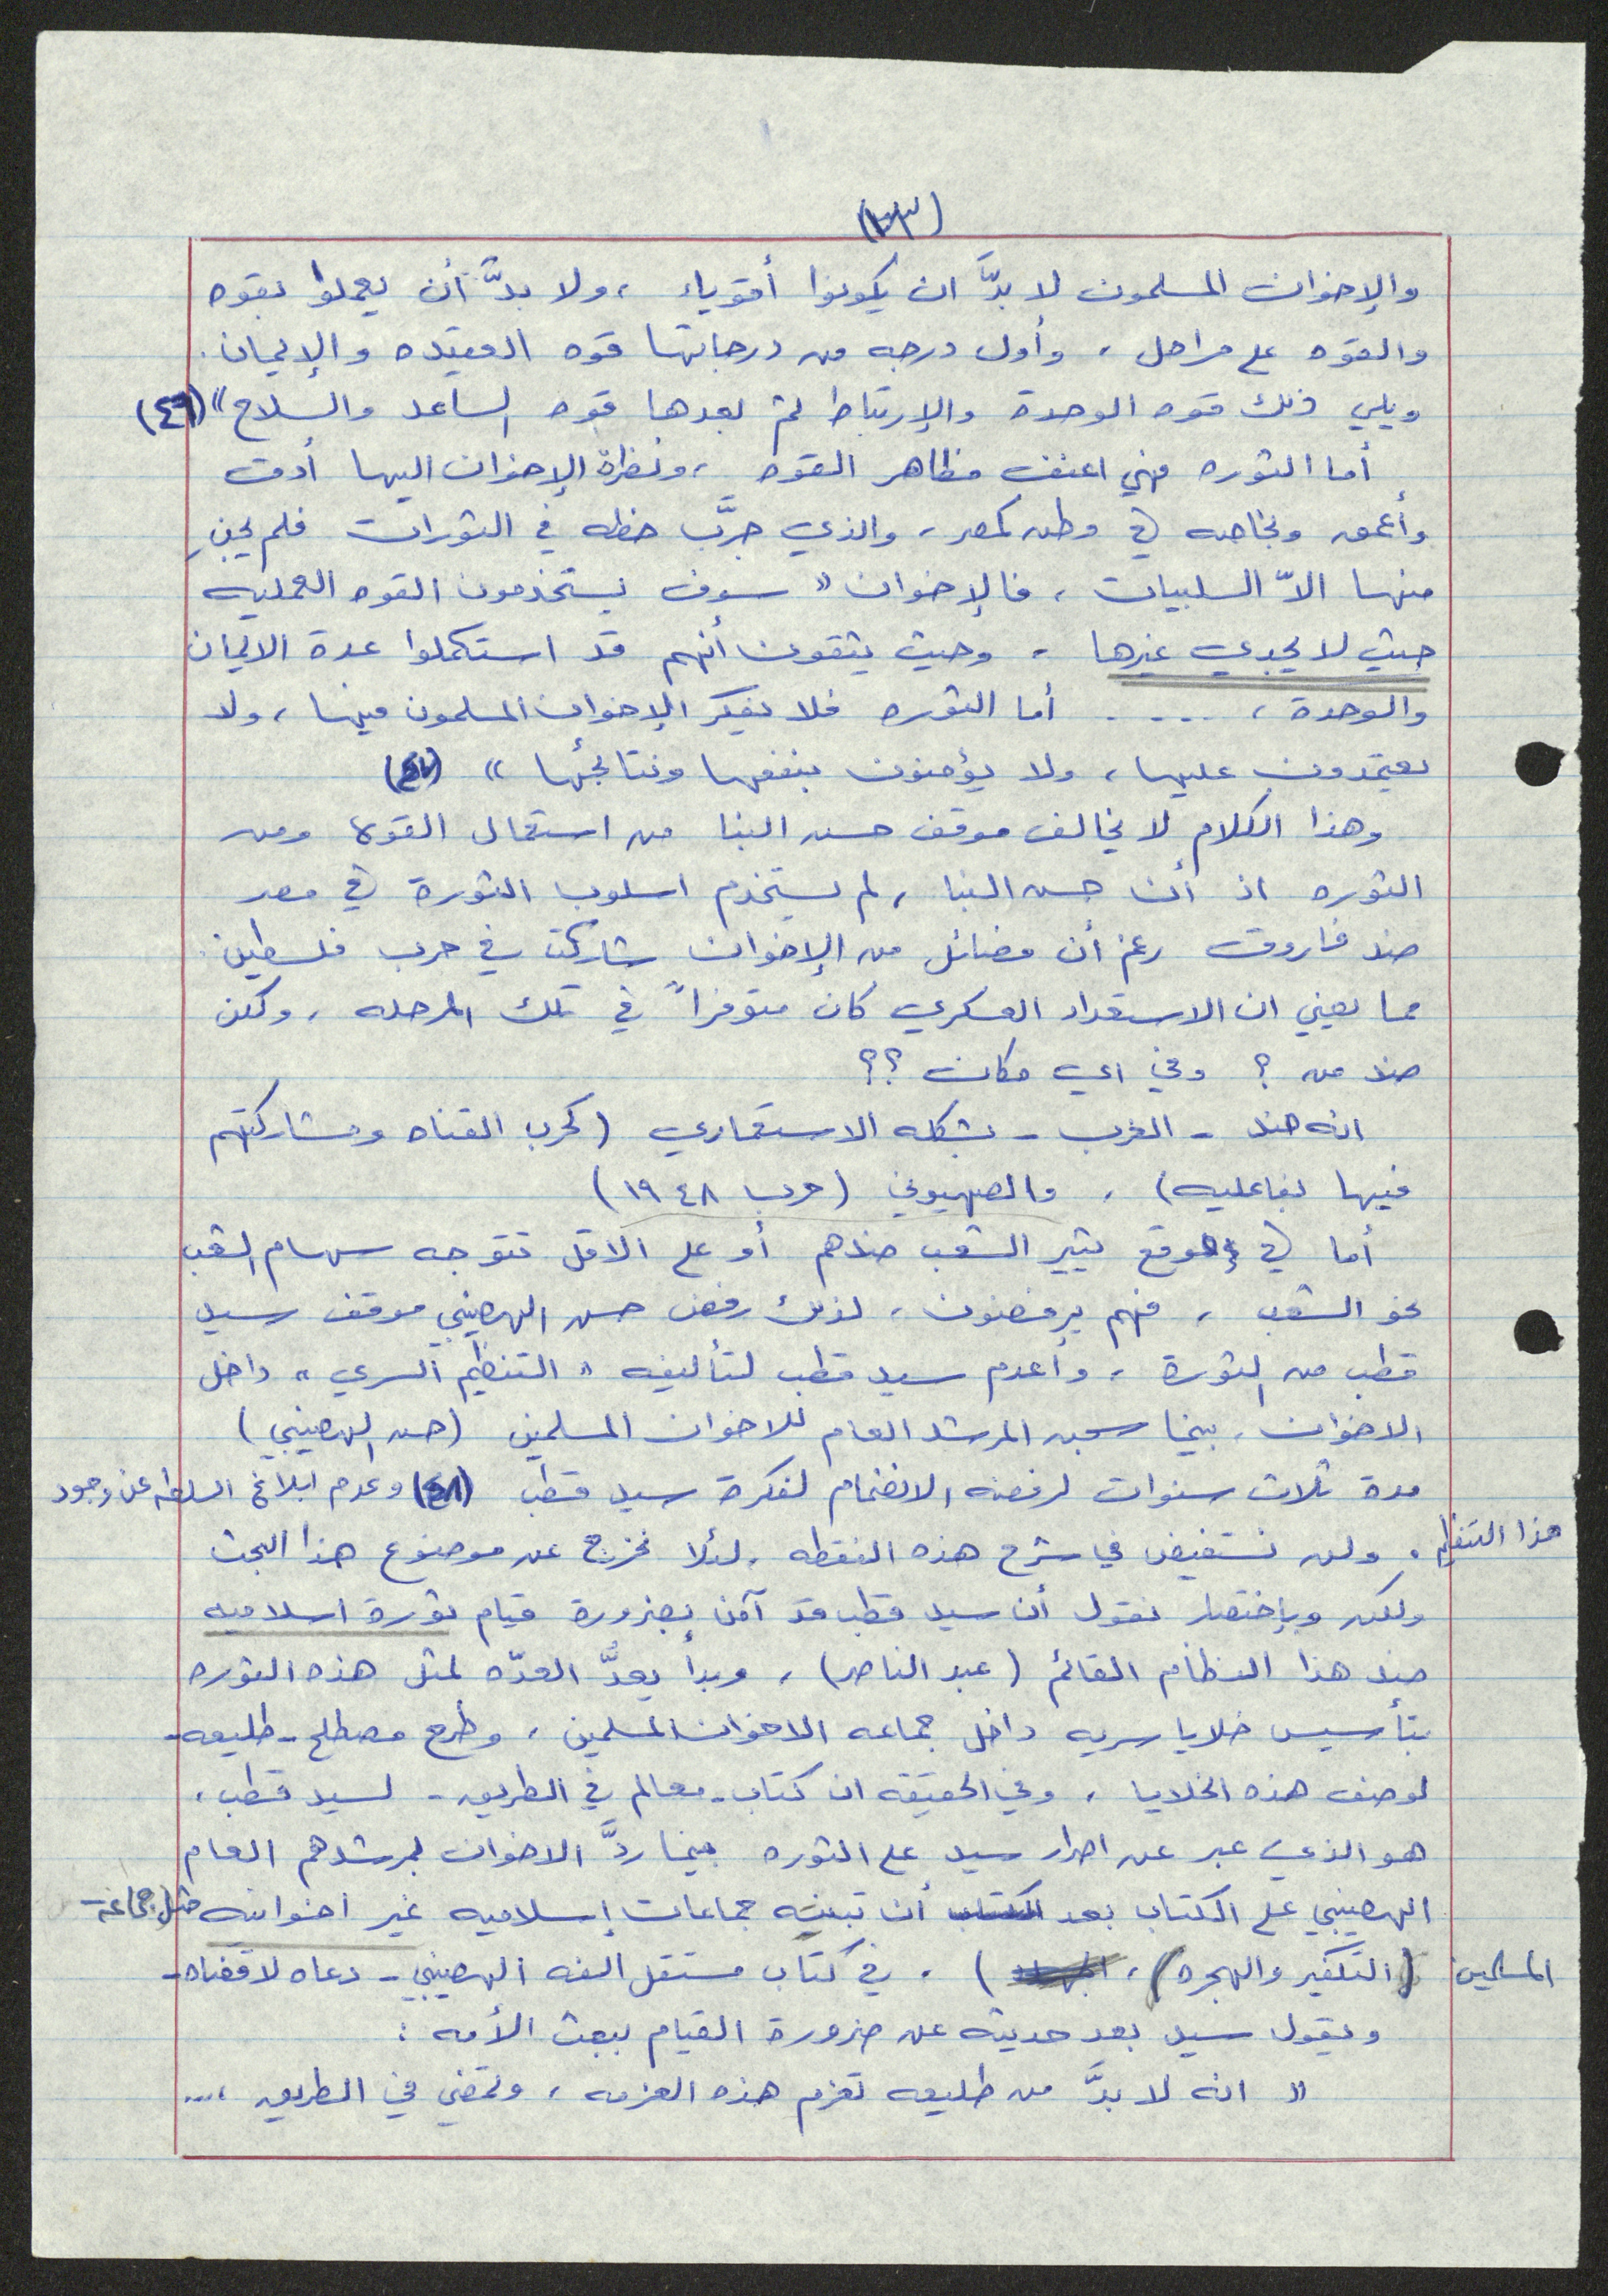 (٢٣)
والإخوان المسلمون لا بدَّ ان يكونوا أقوياء ، ولا بدَّ أن يعملوا بقوه
والقوه على مراحل ، وأول درجه من درجاتها قوه العقيده والإيمان .
ويلي ذلك قوه الوحدة والإرتباط ثم بعدها قوه الساعد والسلاح » (٤٦)
أما الثوره فهي اعنف مظاهر القوه ، ونظرة الإخوان اليها أدق
وأعمق وبخاصه في وطن كمصر ، والذي جرَّب حظه في الثورات فلم يجنِ
منها الاّ السلبيات ، فالإخوان « سوف يستخدمون القوه العمليه
حيث لا يجدي غيرها ، وحيث يثقون أنهم قد استكملوا عدة الايمان
والوحدة ، ..... أما الثوره فلا يفكر الإخوان المسلمون فيها ، ولا
يعتمدون عليها ، ولا يؤمنون بنفعها ونتائجها » (٤٧)
وهذا الكلام لا يخالف موقف حسن البنا من استعمال القوة ومن
الثوره اذ أن حسن البنا ، لم يستخدم اسلوب الثورة في مصر
ضد فاروق رغم أن فصائل من الإخوان شاركت في حرب فلسطين
مما يعني ان الاستعداد العسكري كان متوفراً في تلك المرحله ، ولكن
ضد من ؟ وفي اي مكان ؟؟
انه ضد - الغرب - بشكله الاستعماري (كحرب القناه ومشاركتهم
فيها بفاعليه) ، والصهيوني (حرب ١٩٤٨)
أما في موقع يثير الشعب ضدهم أو على الاقل تتوجه سهام الشعب
نحو الشعب ، فهم يرفضون ، لذلك رفض حسن الهضيبي موقف سيد
قطب من الثورة ، وأعدم سيد قطب لتأليفه « التنظيم السري » داخل
الاخوان ، بينما سجن المرشد العام للاخوان المسلمين (حسن الهضيبي)
مدة ثلاث سنوات لرفضه الانضمام لفكرة سيد قطب (٤٨) وعدم ابلاغ السلطه عن وجود
هذا التنظيم . ولن نستفيض في شرح هذه النقطه ، لئلا نخرج عن موضوع هذا البحث
ولكن وبإختصار نقول أن سيد قطب قد آمن بضرورة قيام ثورة اسلاميه
ضد هذا النظام القائم (عبد الناصر) ، وبدأ يعدَّ العدّه لمثل هذه الثوره
بتأسيس خلايا سريه داخل جماعه الاخوان المسلمين ، وطرح مصطلح - طليعه -
لوصف هذه الخلايا ، وفي الحقيقه ان كتاب - معالم في الطريق - لسيد قطب ،
هو الذي عبر عن اصرار سيد على الثوره بينما ردَّ الاخوان بمرشدهم العام
الهضيبي على الكتاب بعد الكتاب أن تبنته جماعات إسلاميه غير اخوانيه مثل جماعة
المسلمين (التكفير والهجره) ، ) ، في كتاب مستقل الفه الهضيبي - دعاه لا قضاه -
ويقول سيد بعد حديثه عن ضرورة القيام ببعث الأمه :
« انه لا بدَّ من طليعه تعزم هذه العزمه ، وتمضي في الطريق ،...